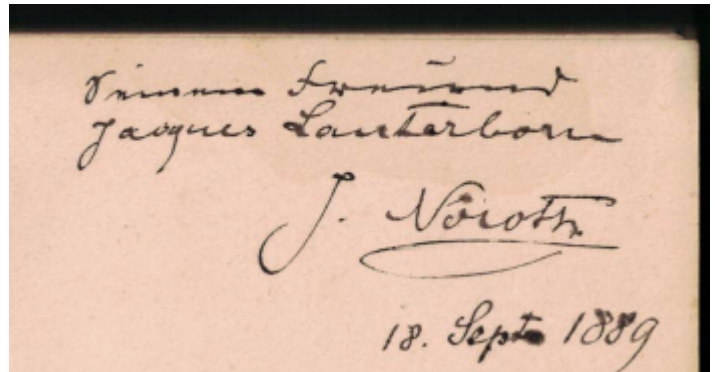 Seinem Freund
Jacques Lauterborn
J. Nöroth
18. Sept 1889